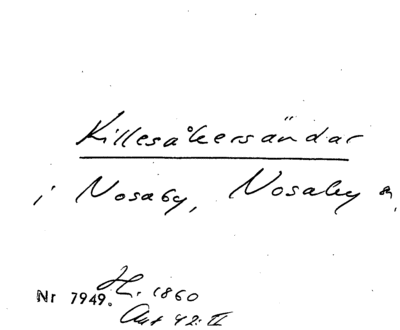 Killesåkersändar
i Nosaby, Nosaby sn,
Nr 7949. H. 1860
Akt 42: II